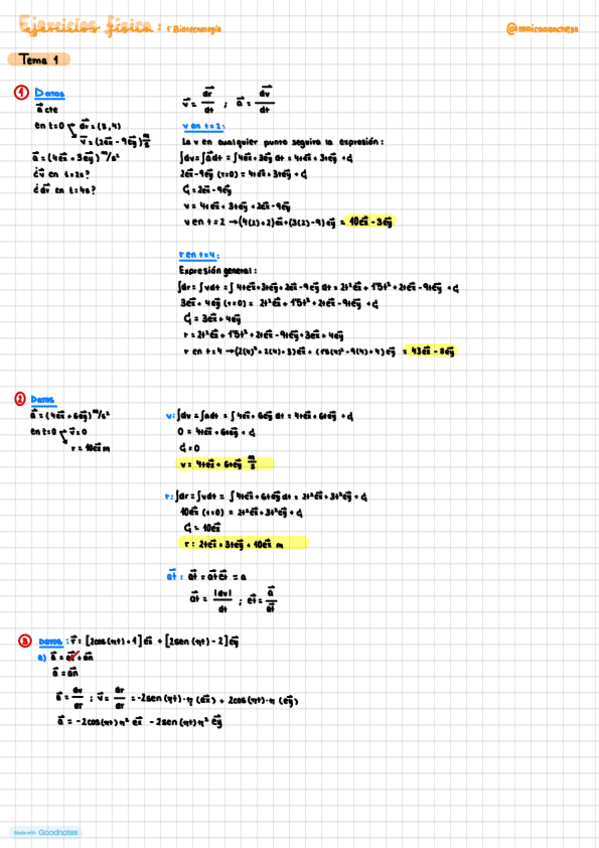 Ejercicios física: 1º Biotecnología
@maicaasanchezs
Tema 1
① Datos
a⃗ cte
en t=0 dr⃗=(3,4)
v⃗=(2ex⃗-9ey⃗) m/s
a⃗=(4ex⃗+3ey⃗) m/s²
¿v⃗ en t=2s?
¿dv⃗ en t=4s?
v⃗= dr⃗/dt ; a⃗= dv⃗/dt
v en t=2:
La v en cualquier punto seguirá la expresión:
∫dv=∫a⃗dt=∫4ex⃗+3ey⃗ dt=4tex⃗+3tey⃗+C₁
2ex⃗-9ey⃗ (t=0)=4tex⃗+3tey⃗+C₁
C₁=2ex⃗-9ey⃗
v=4tex⃗+3tey⃗+2ex⃗-9ey⃗
v en t=2→(4(2)+2)ex⃗+(3(2)-9)ey⃗ = 10ex⃗-3ey⃗
r en t=4:
Expresión general:
∫dr=∫vdt=∫4tex⃗+3tey⃗+2ex⃗-9ey⃗ dt=2t²ex⃗+1'5t²+2tex⃗-9tey⃗+C₁
3ex⃗+4ey⃗ (t=0)= 2t²ex⃗+1'5t²+2tex⃗-9tey⃗+C₁
C₁=3ex⃗+4ey⃗
r=2t²ex⃗+1'5t²+2tex⃗-9tey⃗+3ex⃗+4ey⃗
r en t=4→(2(4)²+2(4)+3)ex⃗+(1'5(4)²-9(4)+4)ey⃗ = 43ex⃗-8ey⃗
② Datos
a⃗=(4ex⃗+6ey⃗) m/s²
en t=0 v⃗=0
r=10ex⃗ m
v:∫dv=∫adt=∫4ex⃗+6ey⃗ dt=4tex⃗+6tey⃗+C₁
0=4tex⃗+6tey⃗+C₁
C₁=0
v=4tex⃗+6tey⃗ m/s
r:∫dr=∫vdt=∫4tex⃗+6tey⃗ dt=2t²ex⃗+3t²ey⃗+C₁
10ex⃗ (t=0)=2t²ex⃗+3t²ey⃗+C₁
C₁=10ex⃗
r: 2tex⃗+3tey⃗+10ex⃗ m
at⃗: at⃗=at⃗et⃗=a
at⃗= |dv|/dt ; et⃗= a⃗/at⃗
③ Datos: r⃗=[2cos(πt)+1]ex⃗+[2sen(πt)-2]ey⃗
a) a⃗=at⃗+an⃗
a⃗=an⃗
a⃗= dv/dr ; v⃗= dr/dr =-2sen(πt)·π(ex⃗)+2cos(πt)·π(ey⃗)
a⃗=-2cos(πt)π² ex⃗ -2sen(πt)π² ey⃗
Made with Goodnotes